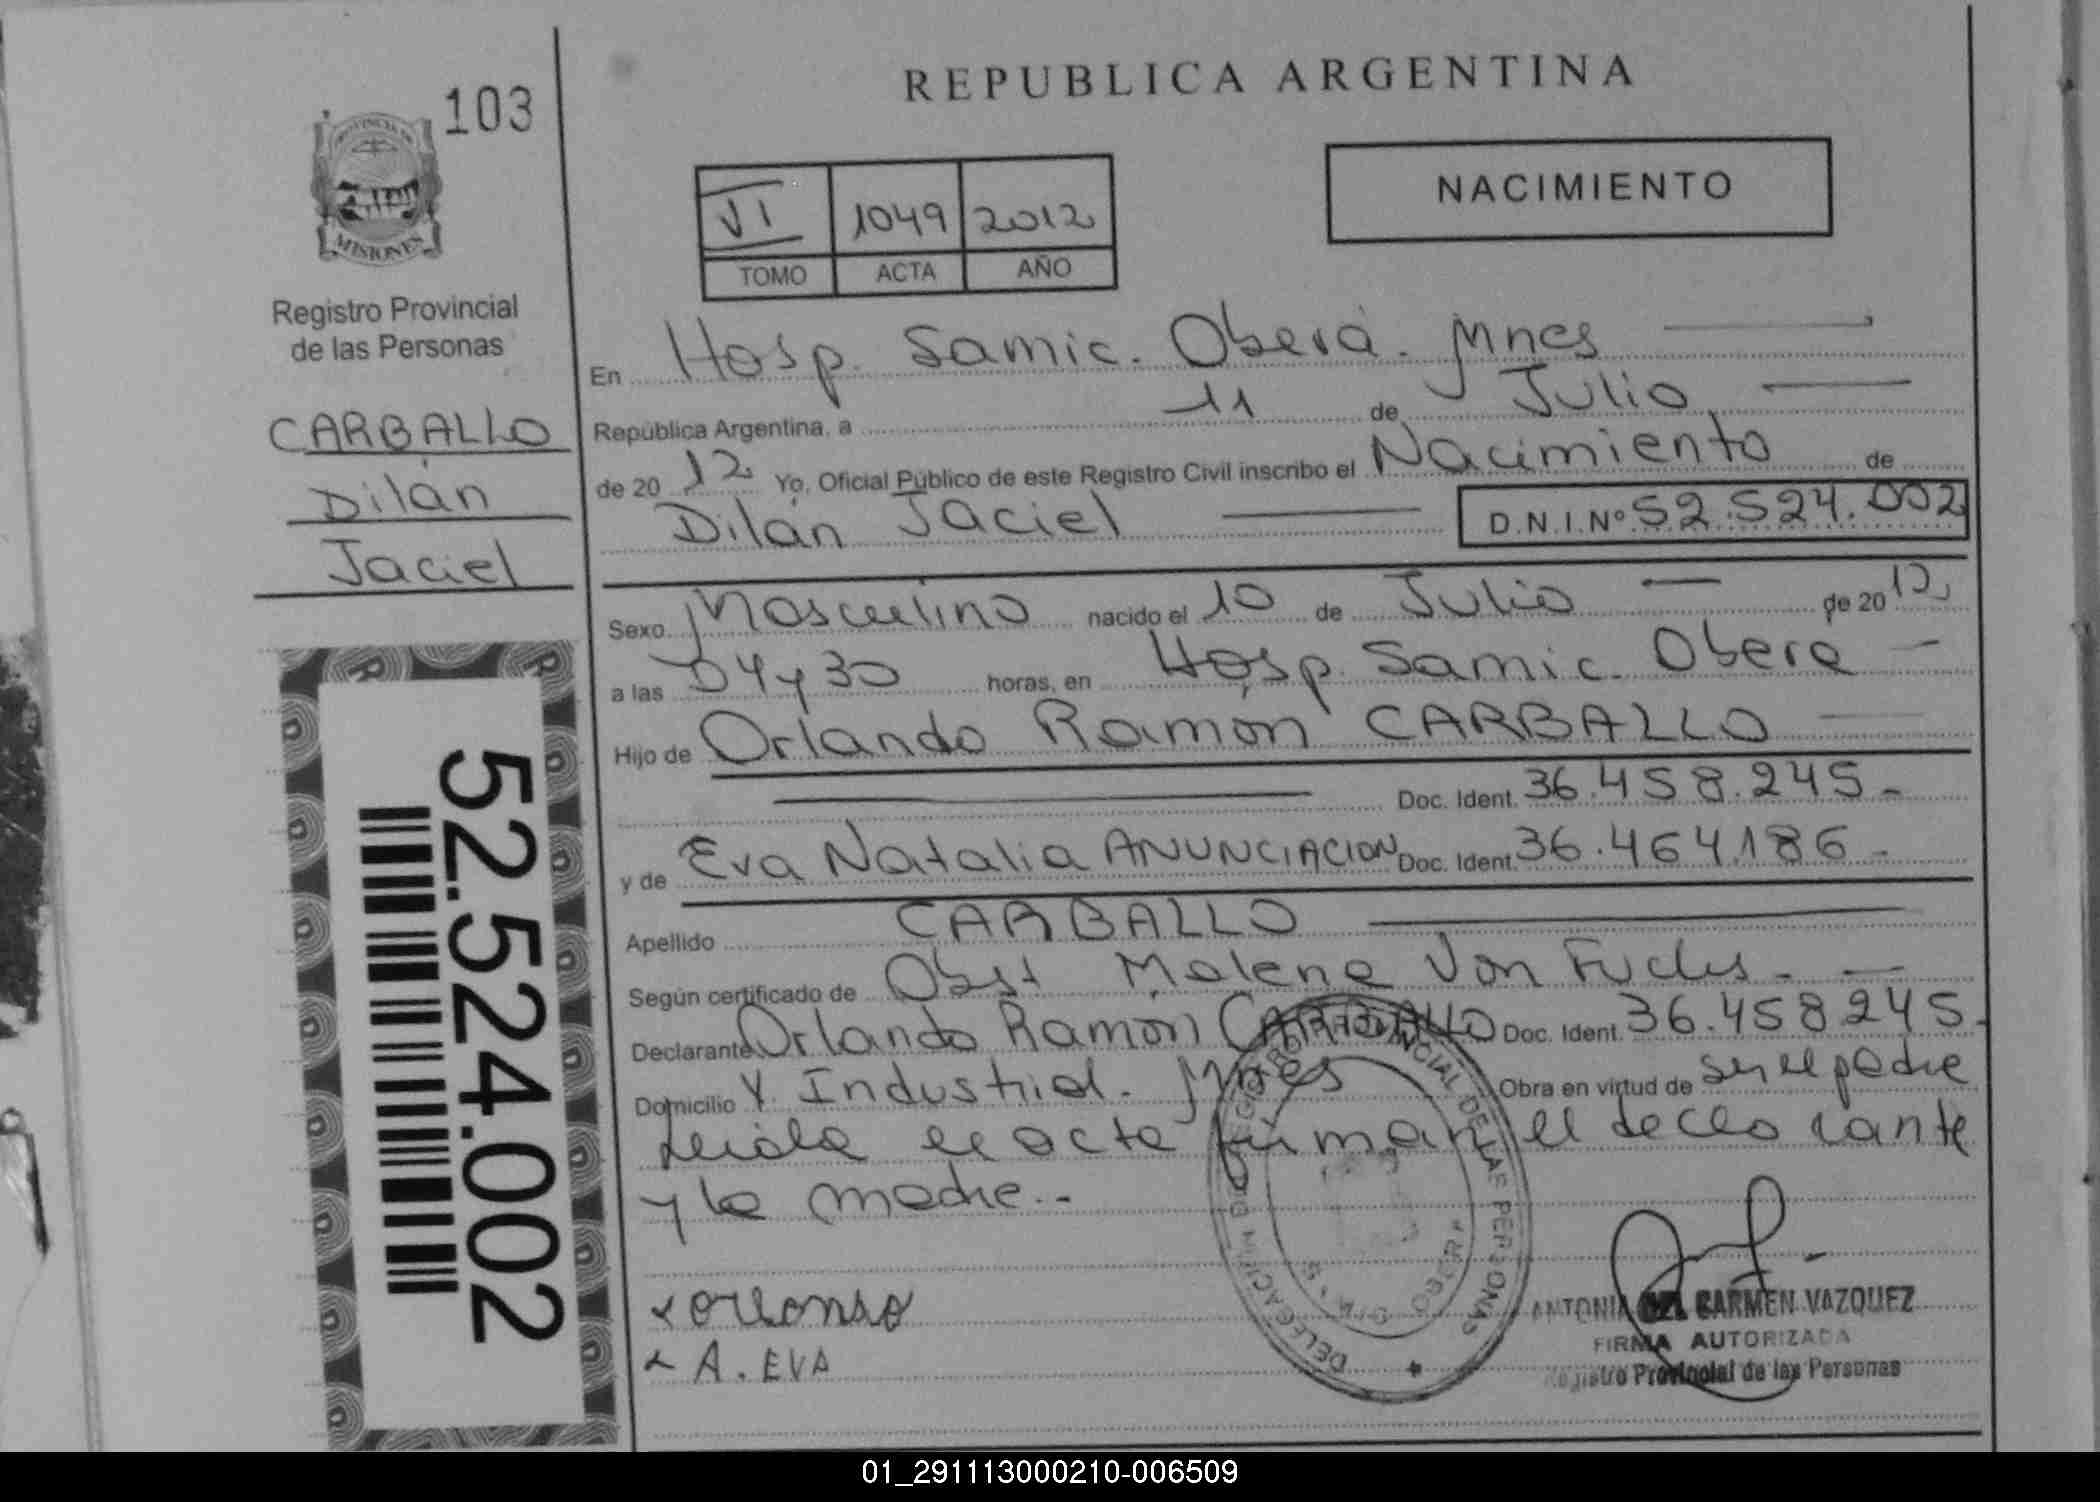 REPUBLICA ARGENTINA
103
PROVINCIA DE
MISIONES
Registro Provincial
de las Personas
CARBALLO
Dilán
Jaciel
52.524.002
NACIMIENTO
VI 1049 2012
TOMO ACTA AÑO
En Hosp. Samic. Oberá. Mnes
República Argentina, a 11 de Julio
de 20 12 Yo, Oficial Público de este Registro Civil inscribo el Nacimiento de
Dilán Jaciel D.N.I.Nº 52.524.002
Sexo Masculino nacido el 10 de Julio de 20 12
a las 04 y 30 horas, en Hosp. Samic. Obera
Hijo de Orlando Ramón CARBALLO
Doc. Ident. 36.458.245-
y de Eva Natalia ANUNCIACION Doc. Ident. 36.464.186-
Apellido CARBALLO
Según certificado de Obst Malena Von Fuchs-
Declarante Orlando Ramón CARBALLO Doc. Ident. 36.458.245-
Domicilio Y. Industrial. Mnes Obra en virtud de ser el padre
Leida el acta firman el declarante
y la madre.-
A. EVA
DELEGACION REGISTRO PROVINCIAL DE LAS PERSONAS
ANTONIA DEL CARMEN VAZQUEZ
FIRMA AUTORIZADA
Registro Provincial de las Personas
01_291113000210-006509